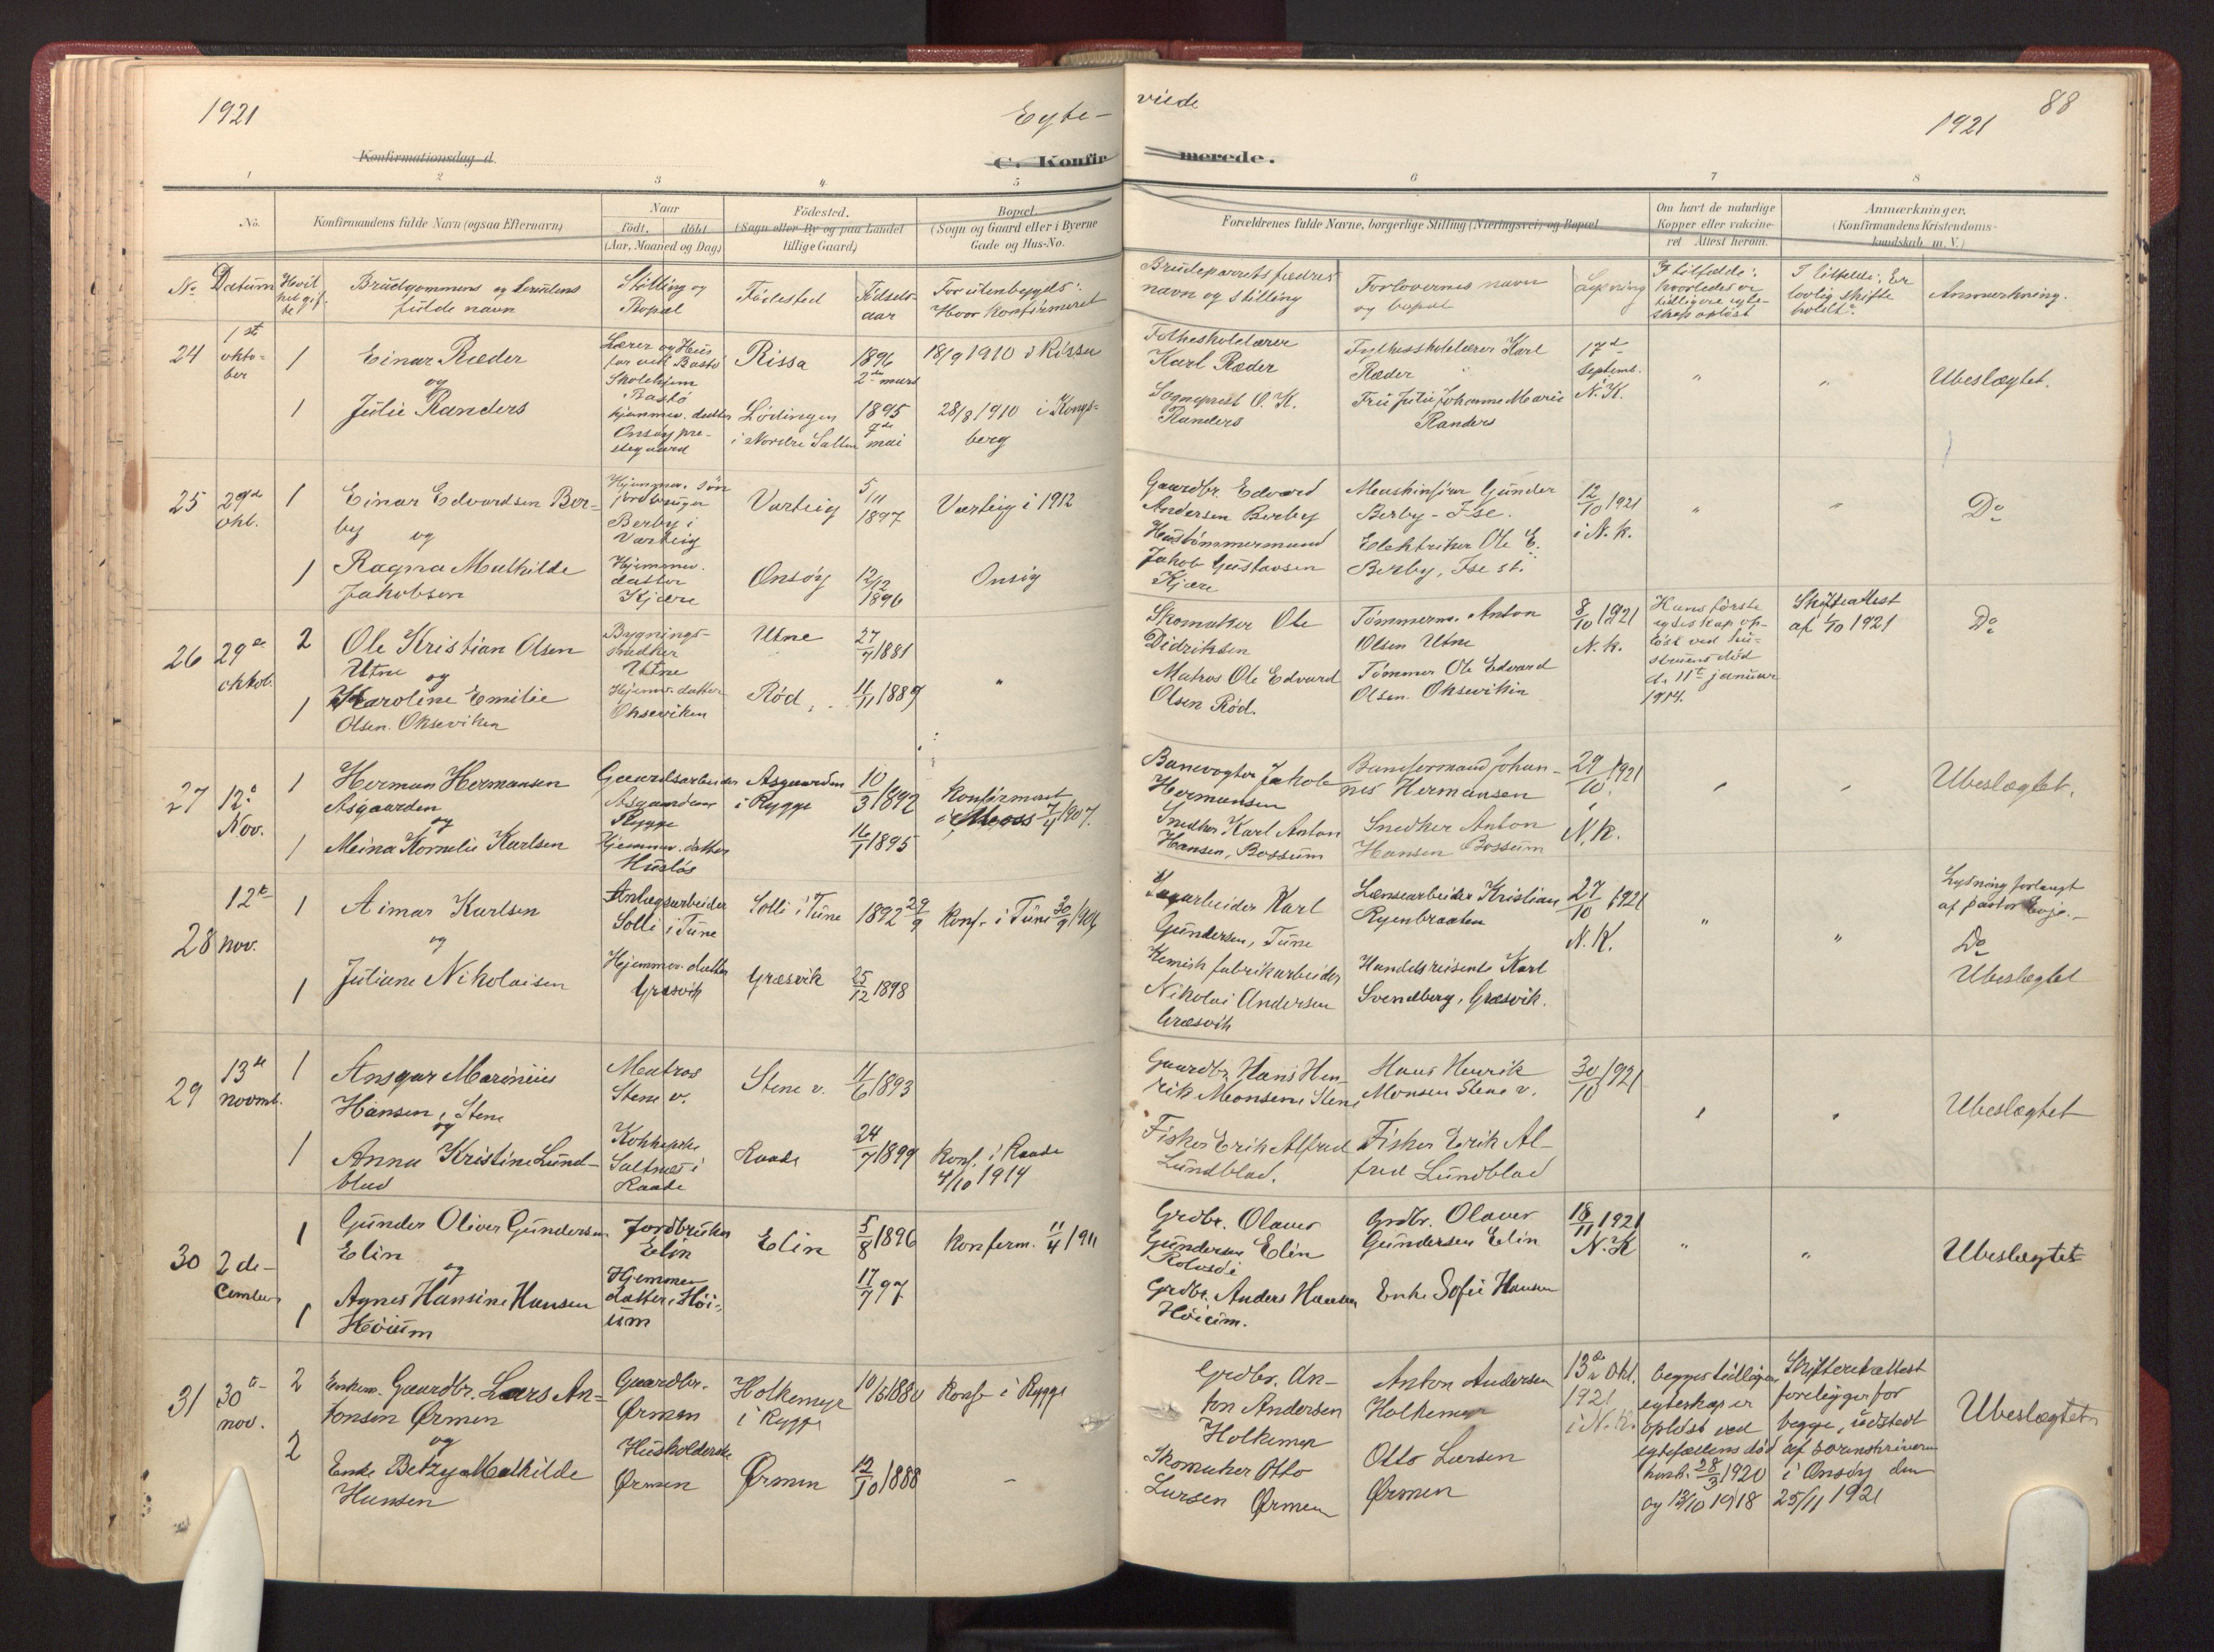 1921
Egte-
Konfirmationsdag d.
C. Konfir
1
2
3
4
5
No.
Konfirmandens fulde Navn (ogsaa Efternavn)
Naar
Födt.
döbt
(Aar, Maaned og Dag)
Födested.
(Sogn eller By og paa Landet
tillige Gaard)
Bopæl.
(Sogn og Gaard eller i Byerne
Gade og Hus-No.
No
Datum
Hvil
ket gif
te
Brudgommens og brudens
fulde navn
Stilling og
Bopæl
Födested
Födsels-
aar
For utenbygds:
Hvor konfirmeret
24
1st
okto-
ber
1
Einar Ræder
og
1
Julie Randers
Lærer og Hus
far ved Bastö
Skolehjem
Bastö
hjemmev. datter
Onsöy pre-
stegaard
Rissa
Lödingen
i Nordre Salten
1896
2de mars
1895
7de
mai
18/9 1910 i Rissa
28/8 1910 i Kongs-
berg
25
29de
okt.
1
Einar Edvardsen Ber-
by og
1
Ragna Mathilde
Jakobsen
Hjemmev. sön
jordbruger
Berby i
Varteig
Hjemmev.
datter
Kjære
Varteig
Onsöy
5/11
1897
12/12
1896
Varteig i 1912
Onsöy
26
29de
oktob.
2
Ole Kristian Olsen
Utne og
1
Karoline Emilie
Olsen. Okseviken
Bygnings-
snedker
Utne
Hjemv. datter
Okseviken
Utne
Röd
27/7 1881
11/11 1889
"
27
12te
Nov.
1
Herman Hermansen
Asgaarden
og
1
Meina Kornelie Karlsen
Gaardsarbeider
Asgaarden
Rygge
Hjemmev. datter
Huslös
Asgaarden
i Rygge
10/3 1892
16/1 1895
Konfirmeret
i Moss 7/4 1907.
28
12te
nov.
1
Aimar Karlsen
og
1
Juliane Nikolaisen
Anlægsarbeider
Solli i Tune
Hjemmev. datter
Græsvik
Solli i Tune
Græsvik
1892 29/9
25/12 1898
Konf. i Tune 30/9 1906
29
13de
novmb.
1
Ansgar Marinius
Hansen, Stene
og
1
Anna Kristine Lund-
blad
Matros
Stene v.
Kokkepike
Saltnes i
Raade
Stene v.
Raade
11/6 1893
24/7 1899
Konf. i Raade
4/10 1914
30
2 de-
cember
1
Gunder Oliver Gundersen
Elin
og
1
Agnes Hansine Hansen
Höium
Jordbruker
Elin
Hjemmev.
datter, Höi-
um
Elin
5/8 1896
17/7 97
Konferm. 11/4 1911
31
30te
nov.
2
Enkem. Gaardbr. Lars An-
tonsen Ørmen
og
2
Enke Betzy Mathilde
Hansen
Gaardbr.
Ørmen
Husholderske
Ørmen
Holkemyr
i Rygge
Ørmen
10/5 1880
12/10 1888
Konf. i Rygge
-
viede
88
1921
merede.
6
7
8
Forældrenes fulde Navne, borgerlige Stilling (Næringsvei) og Bopæl
Om havt de naturlige
Kopper eller vakcine-
ret Attest herom.
Anmærkninger.
(Konfirmandens Kristendoms-
kundskab m. V.)
Brudeparrets fædres
navn og stilling
Forlovernes navn
og bopæl
Lysning
I tilfælde:
hvorledes er
tidligere egte-
skap oplöst
I tilfælde: Er
lovlig skifte
holdt?
Anmerkning.
Folkeskolelærer
Karl Ræder
Sogneprest O. K.
Randers
Folkeskolelærer Karl
Ræder
Fru Julie Johanne Marie
Randers
17de
Septemb.
N. K.
"
"
Ubeslægtet.
Gaardbr. Edvard
Andersen Berby
Hustömmermand
Jakob Gustavsen
Kjære
Maskinfører Gunder
Berby - Ise.
Elektriker Ole E.
Berby, Ise st.
12/10 1921
i N. K.
"
"
Do
Skomaker Ole
Didriksen
Matros Ole Edvard
Olsen Röd.
Tömmerm. Anton
Olsen Utne
Tömmer Ole Edvard
Olsen. Okseviken
8/10 1921
N. K.
Hans förste
egteskap op-
löst ved hu-
struens död
d. 11te januar
1914.
Skifteattest
af 1/10 1921
Do
Banevogter Jakob
Hermansen
Snedker Karl Anton
Hansen, Bossum
Baneformand Johan-
nes Hermansen
Snedker Anton
Hansen Bossum
29/10 1921
N. K.
"
"
Ubeslægtet.
Sagarbeider Karl
Gundersen, Tune
Kemisk fabrikarbeider
Nikolai Andersen
Græsvik
Lænsearbeider Kristian
Ryenbraaten
Handelsreisende Karl
Svendberg, Græsvik.
27/10 1921
N. K.
"
"
Lysning forlangt
af pastor Evje.-
Do
Ubeslægtet
Gaardbr. Hans Hen-
rik Monsen Stene
Fisker Erik Alfred
Lundblad.
Hans Henrik
Monsen Stene v.
Fisker Erik Al-
fred Lundblad
30/10 1921
"
"
Ubeslægtet
Grdbr. Olaver
Gundersen Elin
Rolvsöi
Grdbr. Anders Hansen
Höium.
Grdbr. Olaver
Gundersen Elin
Enke Sofie Hansen
18/11 1921
N. K
"
"
Ubeslægtet
Grdbr. An-
ton Andersen
Holkemyr
Skomaker Otto
Larsen Ørmen
Anton Andersen
Holkemyr
Otto Larsen
Ørmen
13de Okt.
1921
i N. K.
begges tidligere
egteskap er
oplöst ved
egtefællens död
henh. 28/3 1920
og 13/10 1918
Skifteretattest
foreligger for
begge, udstedt
af sorenskriveren
i Onsöy den
25/11 1921
Ubeslægtet